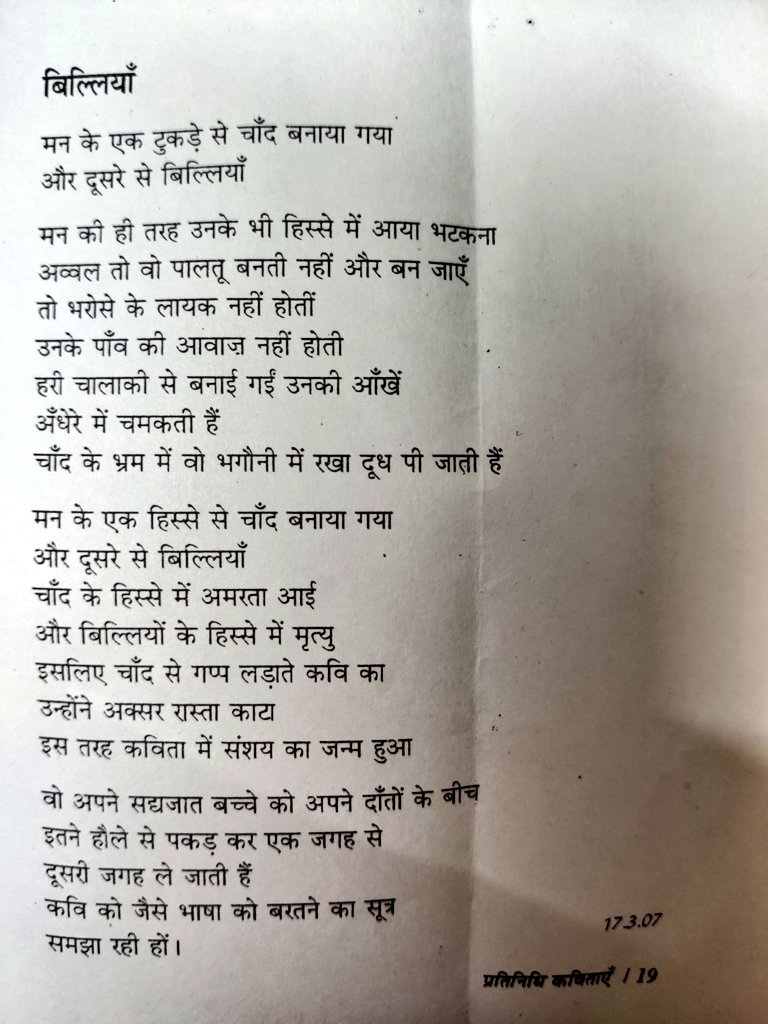 बिल्लियाँ
मन के एक टुकड़े से चाँद बनाया गया
और दूसरे से बिल्लियाँ
मन की ही तरह उनके भी हिस्से में आया भटकना
अव्वल तो वो पालतू बनती नहीं और बन जाएँ
तो भरोसे के लायक नहीं होतीं
उनके पाँव की आवाज़ नहीं होती
हरी चालाकी से बनाई गईं उनकी आँखें
अँधेरे में चमकती हैं
चाँद के भ्रम में वो भगौनी में रखा दूध पी जाती हैं
मन के एक हिस्से से चाँद बनाया गया
और दूसरे से बिल्लियाँ
चाँद के हिस्से में अमरता आई
और बिल्लियों के हिस्से में मृत्यु
इसलिए चाँद से गप्प लड़ाते कवि का
उन्होंने अक्सर रास्ता काटा
इस तरह कविता में संशय का जन्म हुआ
वो अपने सद्यजात बच्चे को अपने दाँतों के बीच
इतने हौले से पकड़ कर एक जगह से
दूसरी जगह ले जाती हैं
कवि को जैसे भाषा को बरतने का सूत्र
समझा रही हों।
17.3.07
प्रतिनिधि कविताएँ / 19